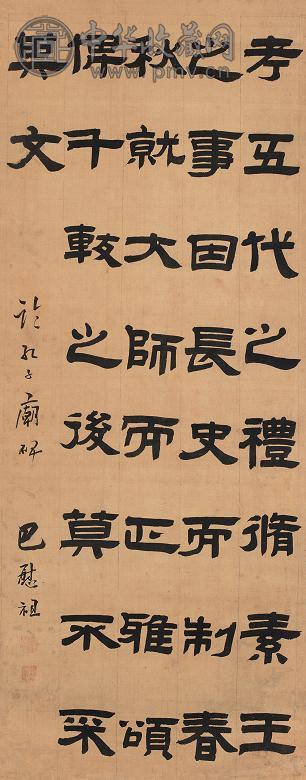 中华收藏网
www.pmv.cn
考五代之禮脩素王
之事因長史而制春
秋就大師而正雅頌
俾千載之後莫不采
其文
臨孔子廟碑 巴慰祖